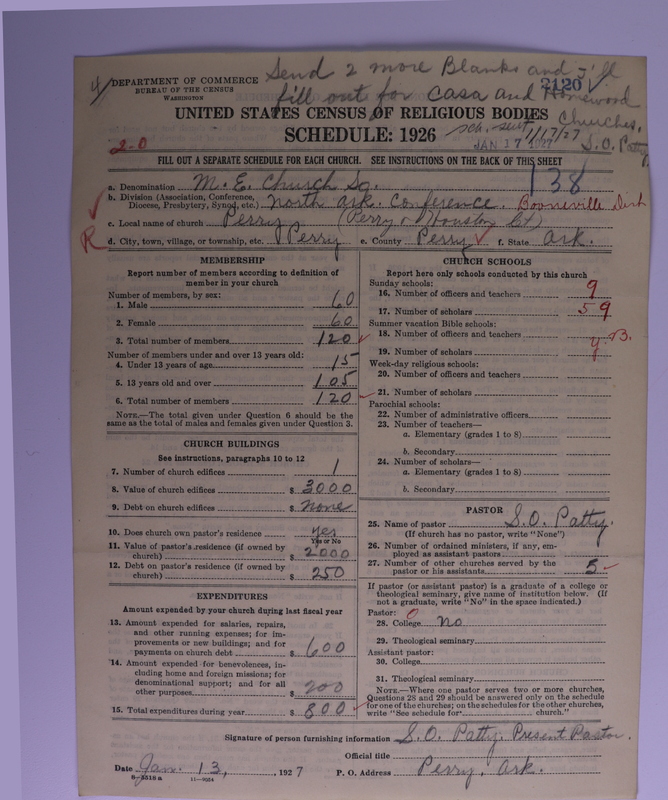 Send 2 more Blanks and I'll
fill out for Casa and Homewood
Churches.
S. O. Patty
4/
DEPARTMENT OF COMMERCE
BUREAU OF THE CENSUS
WASHINGTON
2120
UNITED STATES CENSUS OF RELIGIOUS BODIES
SCHEDULE: 1926
sch. sent 1/17/27
JAN 17 1927
2-0
FILL OUT A SEPARATE SCHEDULE FOR EACH CHURCH. SEE INSTRUCTIONS ON THE BACK OF THIS SHEET
138
a. Denomination M. E. Church So.
b. Division (Association, Conference, Diocese, Presbytery, Synod, etc.) North Ark. Conference. Booneville Dist
c. Local name of church Perry (Perry & Houston Ct)
R
d. City, town, village, or township, etc. Perry e. County Perry f. State Ark.
MEMBERSHIP
Report number of members according to definition of
member in your church
Number of members, by sex:
1. Male 60
2. Female 60
3. Total number of members 120
Number of members under and over 13 years old:
4. Under 13 years of age 15
5. 13 years old and over 105
6. Total number of members 120
NOTE.—The total given under Question 6 should be the
same as the total of males and females given under Question 3.
CHURCH BUILDINGS
See instructions, paragraphs 10 to 12
7. Number of church edifices 1
8. Value of church edifices $ 3000
9. Debt on church edifices $ None
10. Does church own pastor's residence yes
Yes or No
11. Value of pastor's residence (if owned by
church) $ 2000
12. Debt on pastor's residence (if owned by
church) $ 250
EXPENDITURES
Amount expended by your church during last fiscal year
13. Amount expended for salaries, repairs,
and other running expenses; for im-
provements or new buildings; and for
payments on church debt $ 600
14. Amount expended for benevolences, in-
cluding home and foreign missions; for
denominational support; and for all
other purposes $ 200
15. Total expenditures during year $ 800
CHURCH SCHOOLS
Report here only schools conducted by this church
Sunday schools:
16. Number of officers and teachers 9
17. Number of scholars 59
Summer vacation Bible schools:
18. Number of officers and teachers
19. Number of scholars
Week-day religious schools:
20. Number of officers and teachers
21. Number of scholars
Parochial schools:
22. Number of administrative officers
23. Number of teachers—
a. Elementary (grades 1 to 8)
b. Secondary
24. Number of scholars—
a. Elementary (grades 1 to 8)
b. Secondary
PASTOR
25. Name of pastor S. O. Patty.
(If church has no pastor, write "None")
26. Number of ordained ministers, if any, em-
ployed as assistant pastors
27. Number of other churches served by the
pastor or his assistants 5
If pastor (or assistant pastor) is a graduate of a college or
theological seminary, give name of institution below. (If
not a graduate, write "No" in the space indicated.)
Pastor: 0
28. College No
29. Theological seminary
Assistant pastor:
30. College
31. Theological seminary
NOTE.—Where one pastor serves two or more churches,
Questions 28 and 29 should be answered only on the schedule
for one of the churches; on the schedules for the other churches,
write "See schedule for church."
Signature of person furnishing information S. O. Patty. Present Pastor.
Official title
Date Jan. 13, , 1927 P. O. Address Perry, Ark.
8-3518 a 11-9524